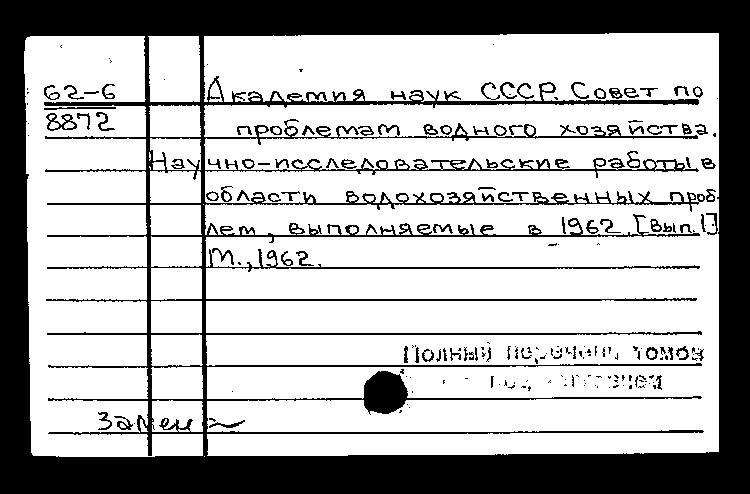 62-6
8872
Академия наук СССР. Совет по
проблемам водного хозяйства.
Научно-исследовательские работы в
области водохозяйственных проб-
лем, выполняемые в 1962. [Вып. 1]
М., 1962.
Полный перечень томов
под
Замен